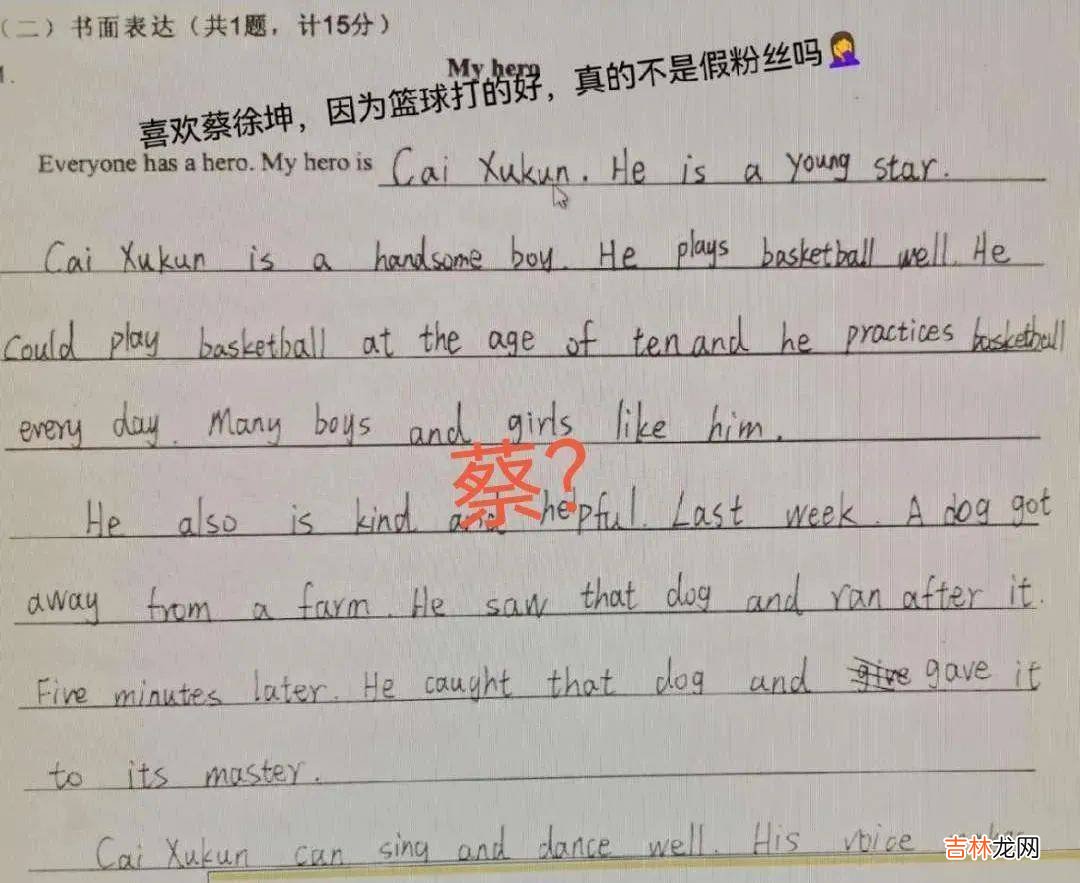 （二）书面表达（共1题，计15分）
1.
My hero
喜欢蔡徐坤，因为篮球打的好，真的不是假粉丝吗🤦‍♀️
Everyone has a hero. My hero is Cai Xukun. He is a young star.
Cai Xukun is a handsome boy. He plays basketball well. He
could play basketball at the age of ten and he practices basketball
every day. Many boys and girls like him.
蔡?
He also is kind and helpful. Last week. A dog got
away from a farm. He saw that dog and ran after it.
Five minutes later. He caught that dog and give gave it
to its master.
Cai Xukun can sing and dance well. His voice
吉林龙网